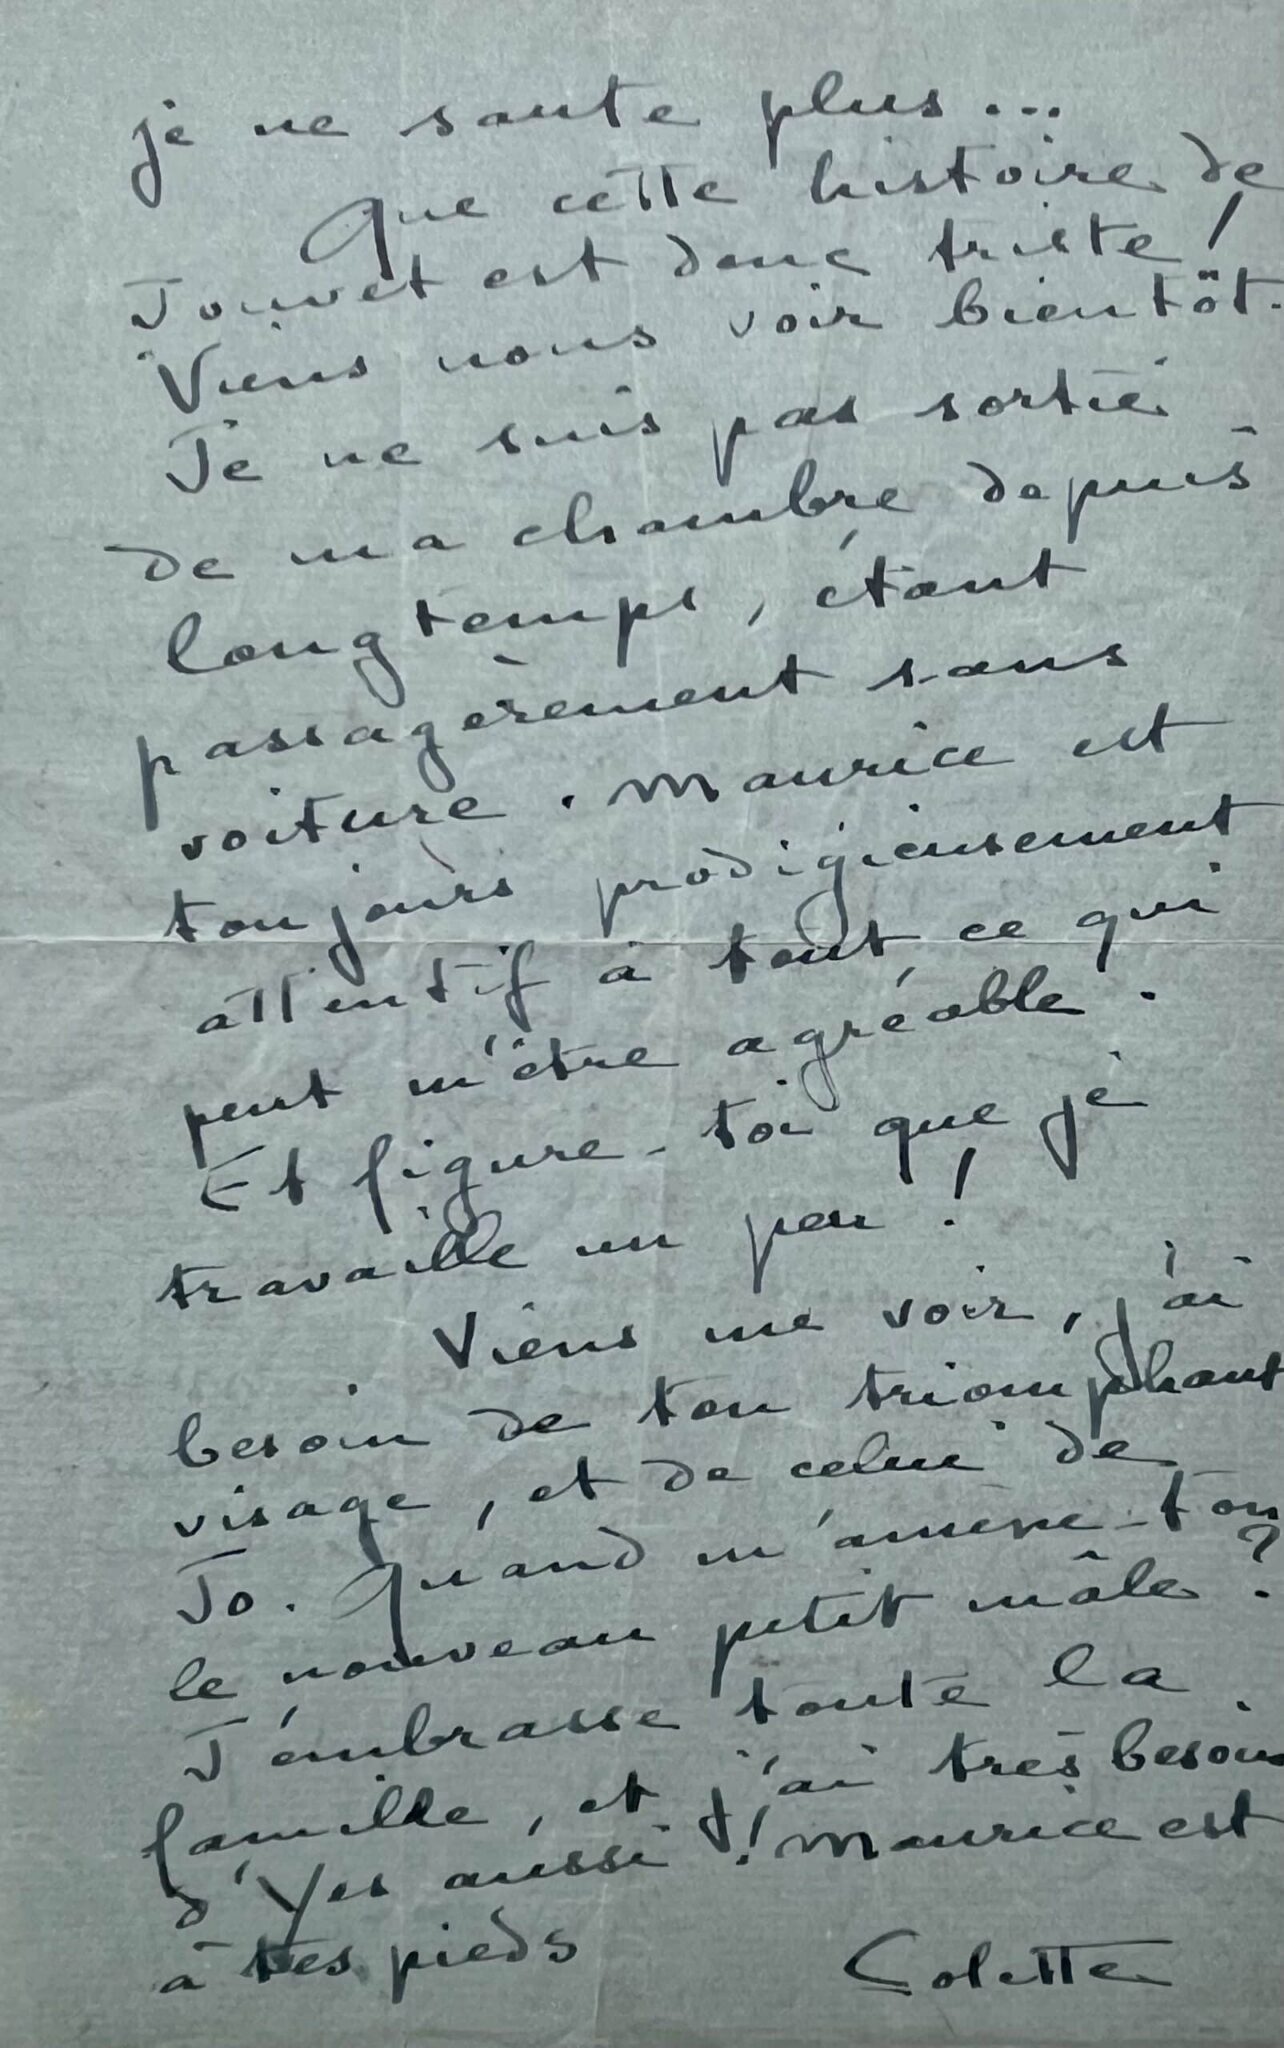 je ne saute plus...
Que cette histoire de
Jouvet est donc triste !
Viens nous voir bientôt.
Je ne suis pas sortie
de ma chambre depuis
longtemps, étant
passagèrement sans
voiture. Maurice est
toujours prodigieusement
attentif à tout ce qui
peut m'être agréable.
Et figure-toi que je
travaille un peu !
Viens me voir, j'ai
besoin de ton triomphant
visage, et de celui de
Jo. Quand m'amène-t-on
le nouveau petit mâle ?
J'embrasse toute la
famille, et j'ai très besoin
d'Yes aussi ! Maurice est
à tes pieds
Colette